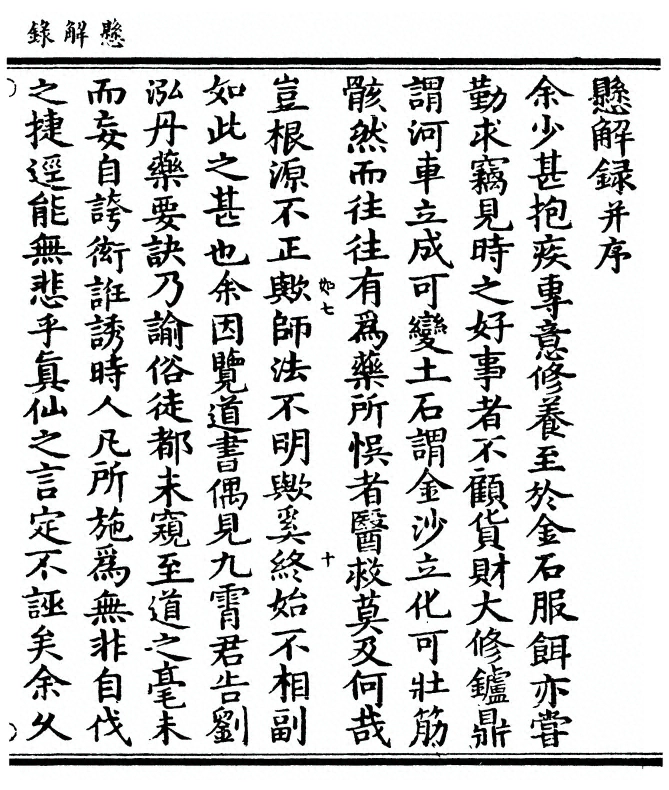 懸解錄
懸解録并序
余少甚抱疾專意修養至於金石服餌亦嘗
勤求竊見時之好事者不顧貨財大修鑪鼎
謂河車立成可變土石謂金沙立化可壯筋
骸然而往往有爲藥所悮者醫救莫及何哉
豈根源不正歟師法不明歟奚終始不相副
如七
十
如此之甚也余因覽道書偶見九霄君告劉
泓丹藥要訣乃諭俗徒都未窺至道之毫末
而妄自誇衒誑誘時人凡所施爲無非自伐
之捷逕能無悲乎眞仙之言定不誣矣余久